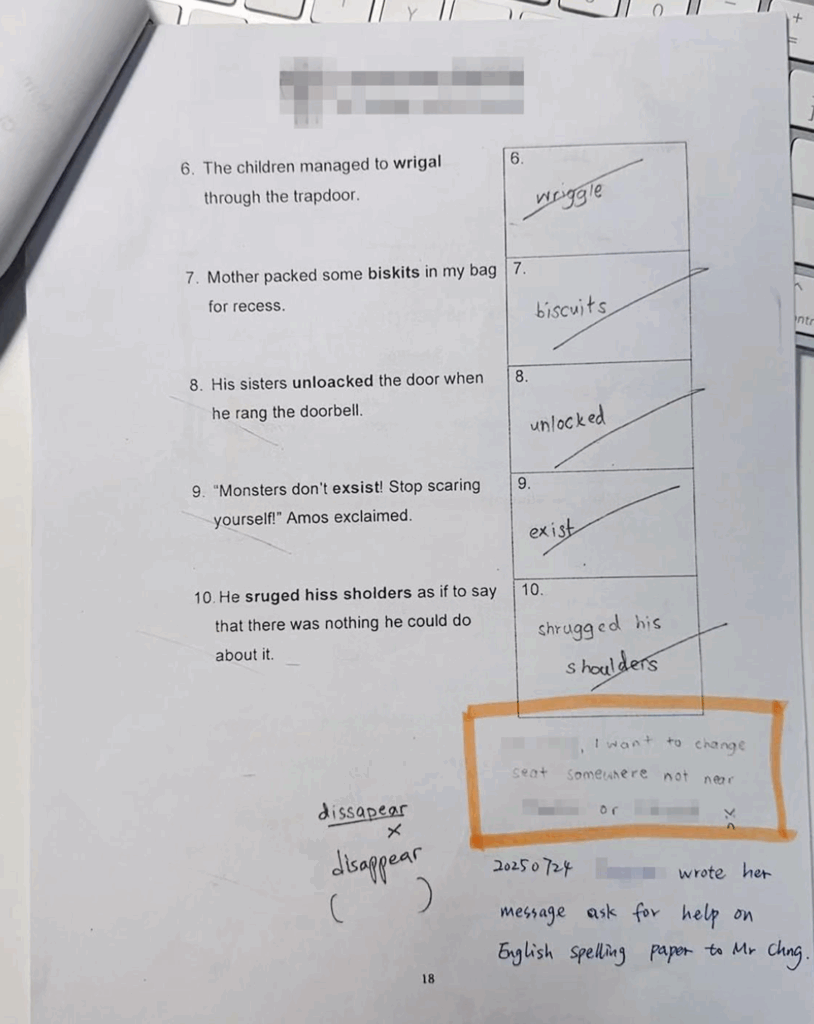 6. The children managed to wrigal
through the trapdoor.
6.
wriggle
7. Mother packed some biskits in my bag
for recess.
7.
biscuits
8. His sisters unloacked the door when
he rang the doorbell.
8.
unlocked
9. "Monsters don't exsist! Stop scaring
yourself!" Amos exclaimed.
9.
exist
10. He sruged hiss sholders as if to say
that there was nothing he could do
about it.
10.
shrugged his
shoulders
, I want to change
seat somewhere not near
or
dissapear
x
disappear
( )
20250724 wrote her
message ask for help on
English spelling paper to Mr Chng.
18